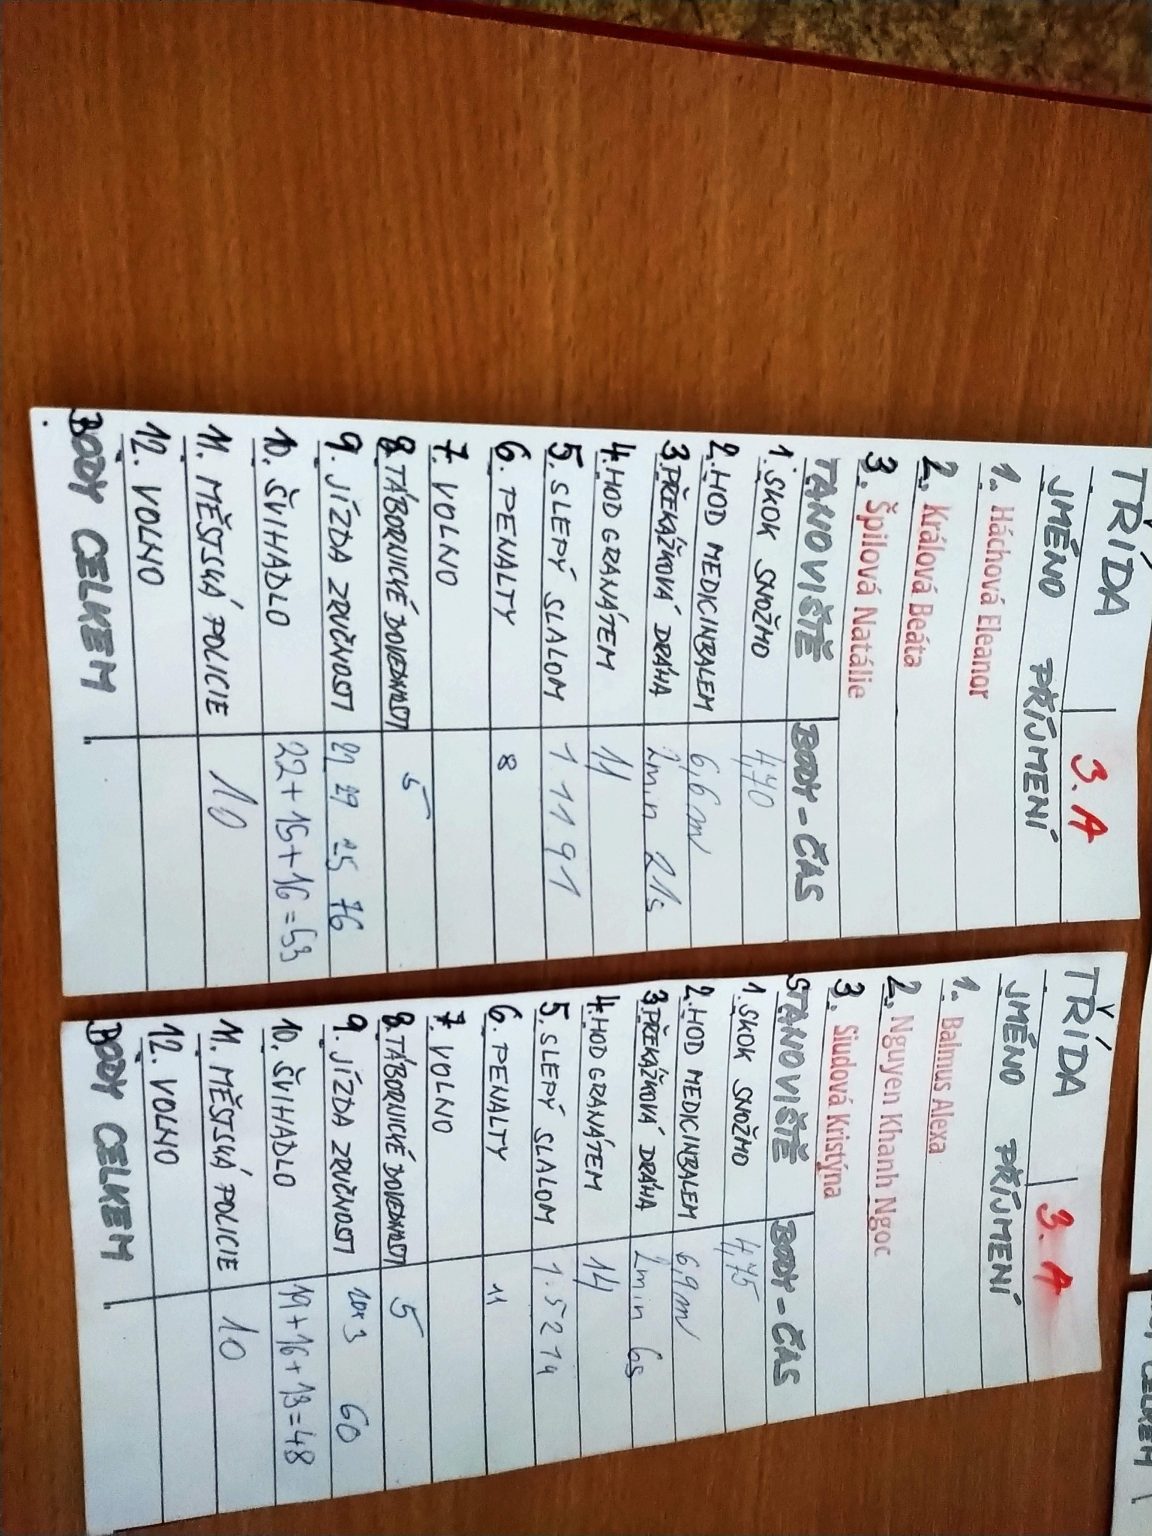 TŘÍDA 3. A
JMÉNO PŘÍJMENÍ
1. Háchová Eleanor
2. Králová Beáta
3. Špilová Natálie
STANOVIŠTĚ BODY - ČAS
1. SKOK SNOŽMO 4,70
2. HOD MEDICINBALEM 6,6 m
3. PŘEKAŽKOVÁ DRÁHA 2 min 21s
4. HOD GRANÁTEM 11
5. SLEPÝ SLALOM 1.11 91
6. PENALTY 8
7. VOLNO
8. TÁBORNICKÉ DOVEDNOSTI 5
9. JÍZDA ZRUČNOSTI 25 76
10. ŠVIHADLO 22+15+16=53
11. MĚSTSKÁ POLICIE 10
12. VOLNO
BODY CELKEM
TŘÍDA 3. A
JMÉNO PŘÍJMENÍ
1. Balmus Alexa
2. Nguyen Khanh Ngoc
3. Siudová Kristýna
STANOVIŠTĚ BODY - ČAS
1. SKOK SNOŽMO 4,75
2. HOD MEDICINBALEM 6,9 m
3. PŘEKAŽKOVÁ DRÁHA 2 min 6s
4. HOD GRANÁTEM 14
5. SLEPÝ SLALOM 1.52 14
6. PENALTY 11
7. VOLNO
8. TÁBORNICKÉ DOVEDNOSTI 5
9. JÍZDA ZRUČNOSTI 60
10. ŠVIHADLO 19+16+13=48
11. MĚSTSKÁ POLICIE 10
12. VOLNO
BODY CELKEM
CELKEM